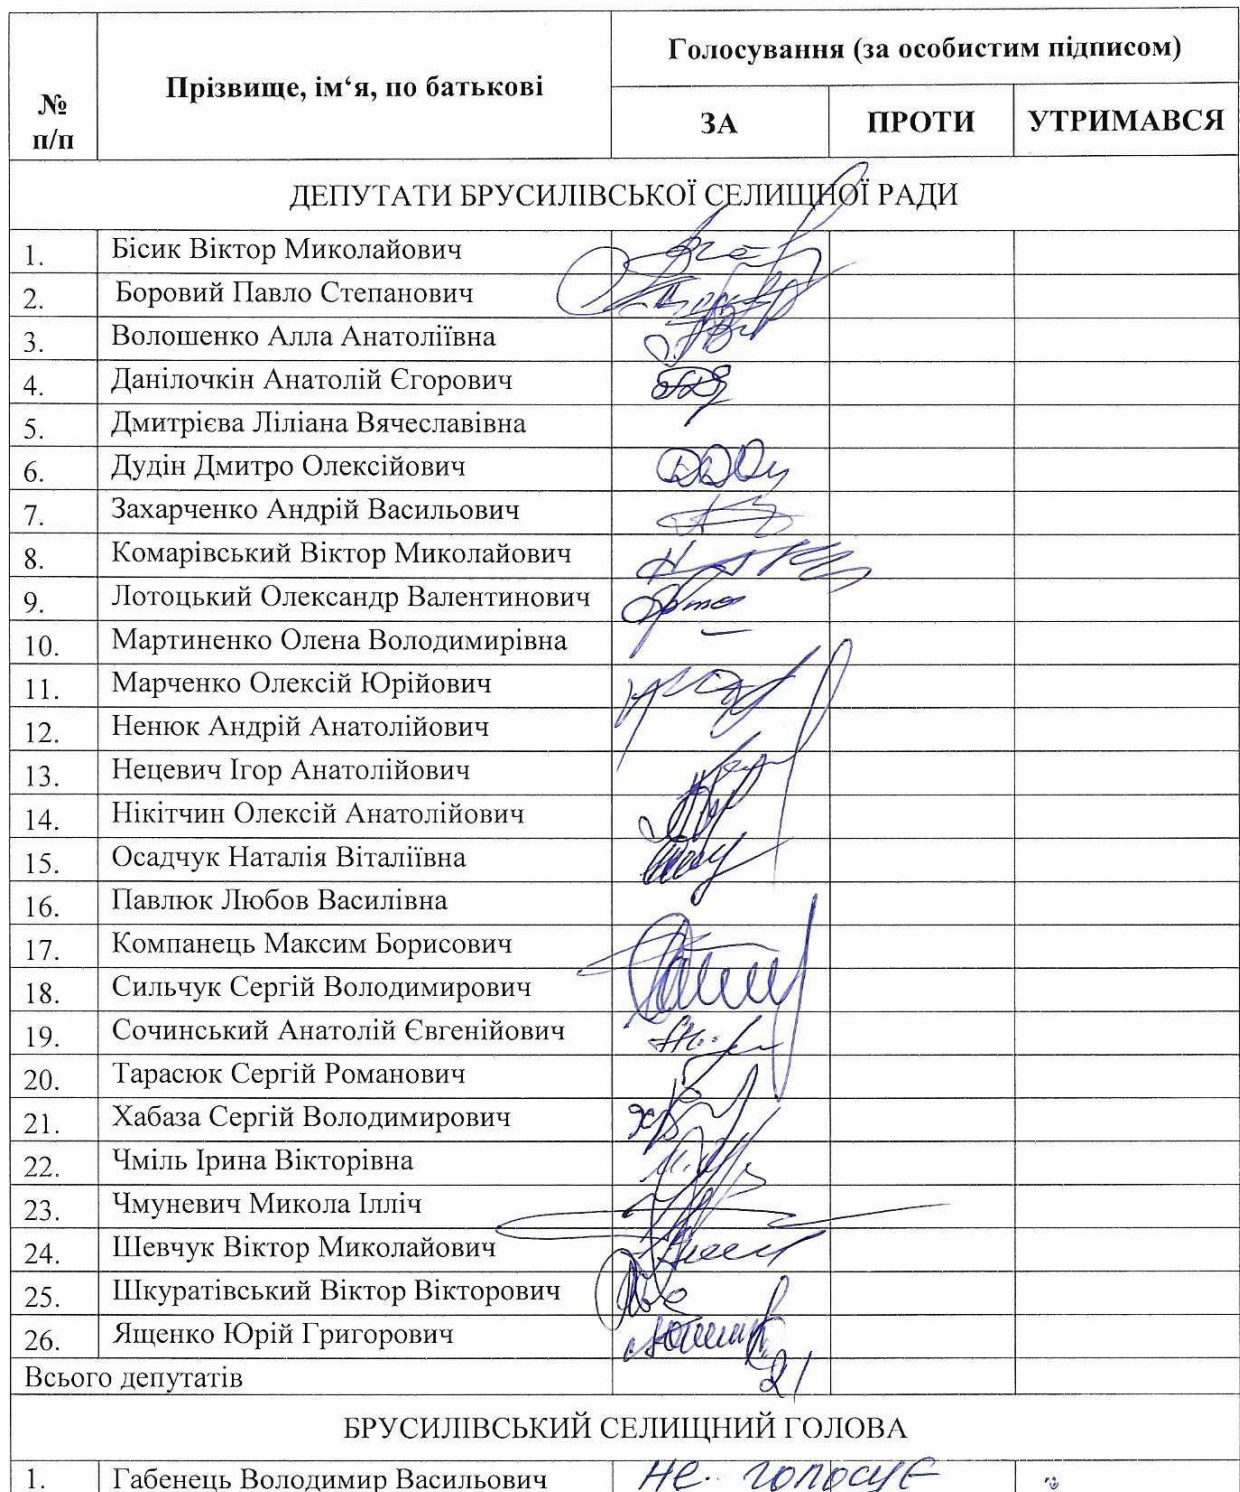 Голосування (за особистим підписом)
№ п/п
Прізвище, ім‘я, по батькові
ЗА
ПРОТИ
УТРИМАВСЯ
ДЕПУТАТИ БРУСИЛІВСЬКОЇ СЕЛИЩНОЇ РАДИ
1. Бісик Віктор Миколайович
2. Боровий Павло Степанович
3. Волошенко Алла Анатоліївна
4. Данілочкін Анатолій Єгорович
5. Дмитрієва Ліліана Вячеславівна
6. Дудін Дмитро Олексійович
7. Захарченко Андрій Васильович
8. Комарівський Віктор Миколайович
9. Лотоцький Олександр Валентинович
10. Мартиненко Олена Володимирівна
11. Марченко Олексій Юрійович
12. Ненюк Андрій Анатолійович
13. Нецевич Ігор Анатолійович
14. Нікітчин Олексій Анатолійович
15. Осадчук Наталія Віталіївна
16. Павлюк Любов Василівна
17. Компанець Максим Борисович
18. Сильчук Сергій Володимирович
19. Сочинський Анатолій Євгенійович
20. Тарасюк Сергій Романович
21. Хабаза Сергій Володимирович
22. Чміль Ірина Вікторівна
23. Чмуневич Микола Ілліч
24. Шевчук Віктор Миколайович
25. Шкуратівський Віктор Вікторович
26. Ященко Юрій Григорович
Всього депутатів 21
БРУСИЛІВСЬКИЙ СЕЛИЩНИЙ ГОЛОВА
1. Габенець Володимир Васильович не голосує